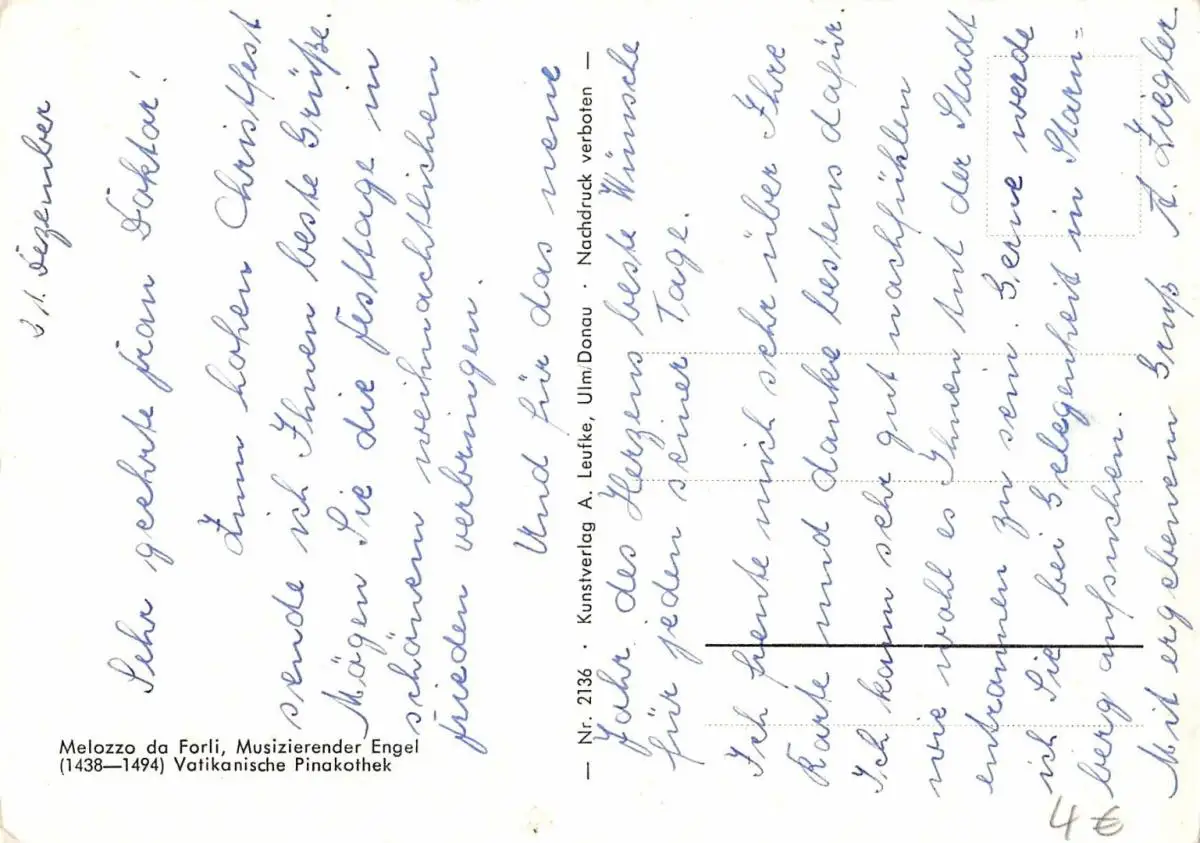 21. Dezember
Sehr geehrte Frau Doktor!
Zum hohen Christfest
sende ich Ihnen beste Grüße.
Mögen Sie die Festtage in
schönen weihnachtlichen
Frieden verbringen.
Und für das neue
Jahr des Herzens beste Wünsche
für jeden seiner Tage.
Ich freute mich sehr über Ihre
Karte und danke bestens dafür.
Ich kann sehr gut nachfühlen
wie wohl es Ihnen tut der Stadt
entrannen zu sein. Gerne werde
ich Sie bei Gelegenheit in Starn=
berg aufsuchen.
Mit ergebenem Gruß A. Ziegler
Melozzo da Forli, Musizierender Engel
(1438—1494) Vatikanische Pinakothek
— Nr. 2136 · Kunstverlag A. Leufke, Ulm/Donau · Nachdruck verboten —
4 €